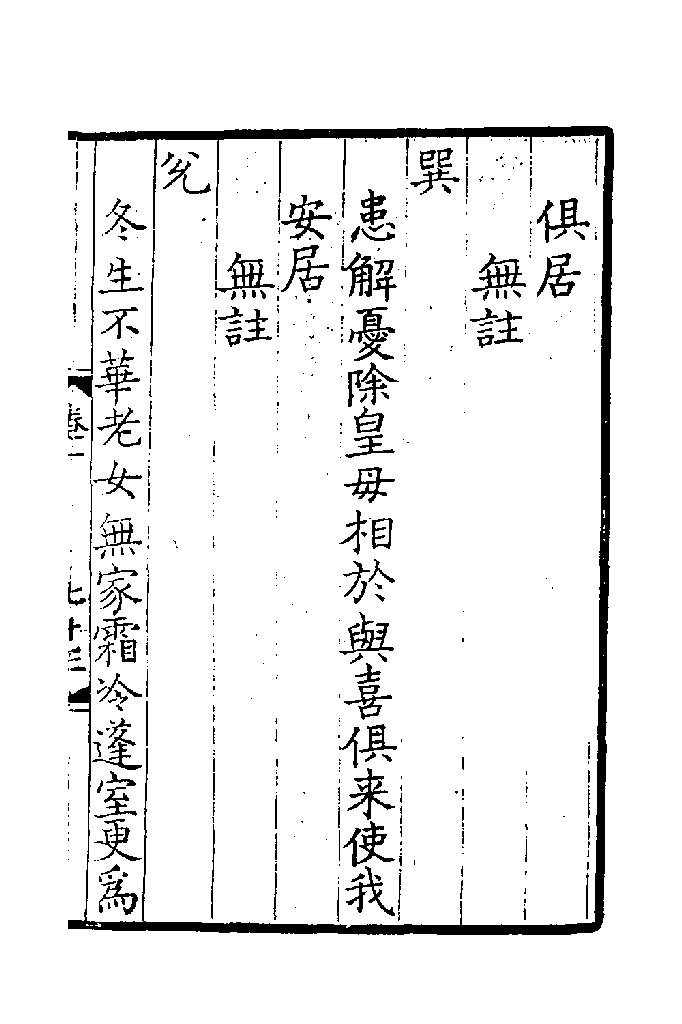 俱居
無註
巽
患解憂除皇毋相於與喜俱来使我
安居
無註
兊
冬生不華老女無家霜冷蓬室更爲
卷一
七十三